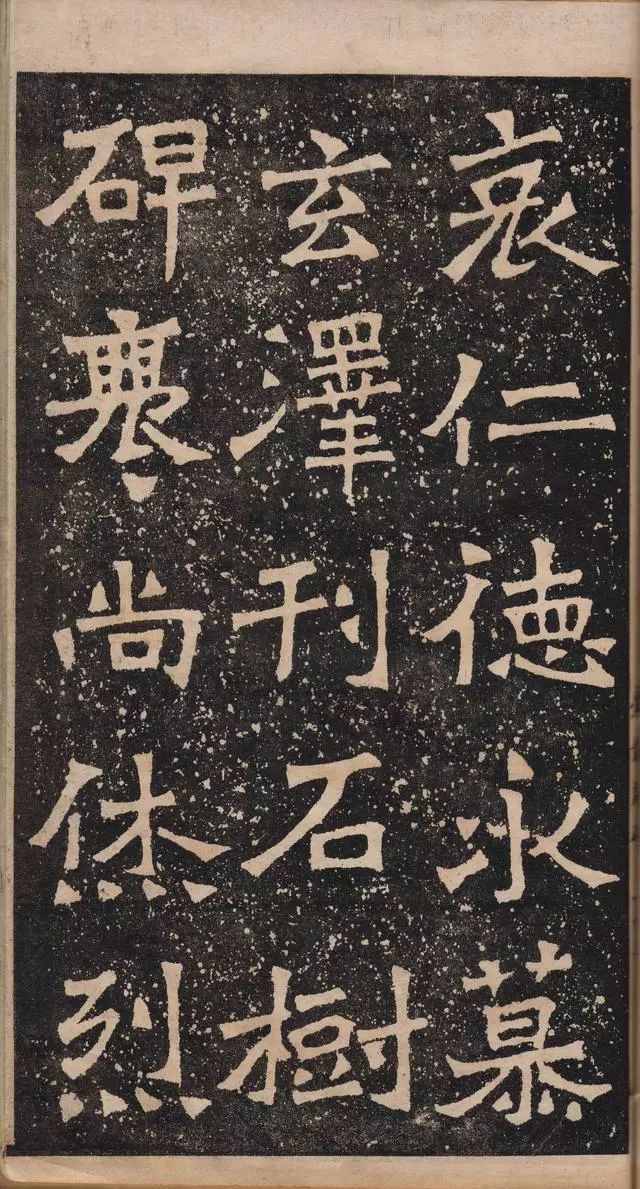 哀仁德永慕
玄澤刊石樹
碑褒尚休烈